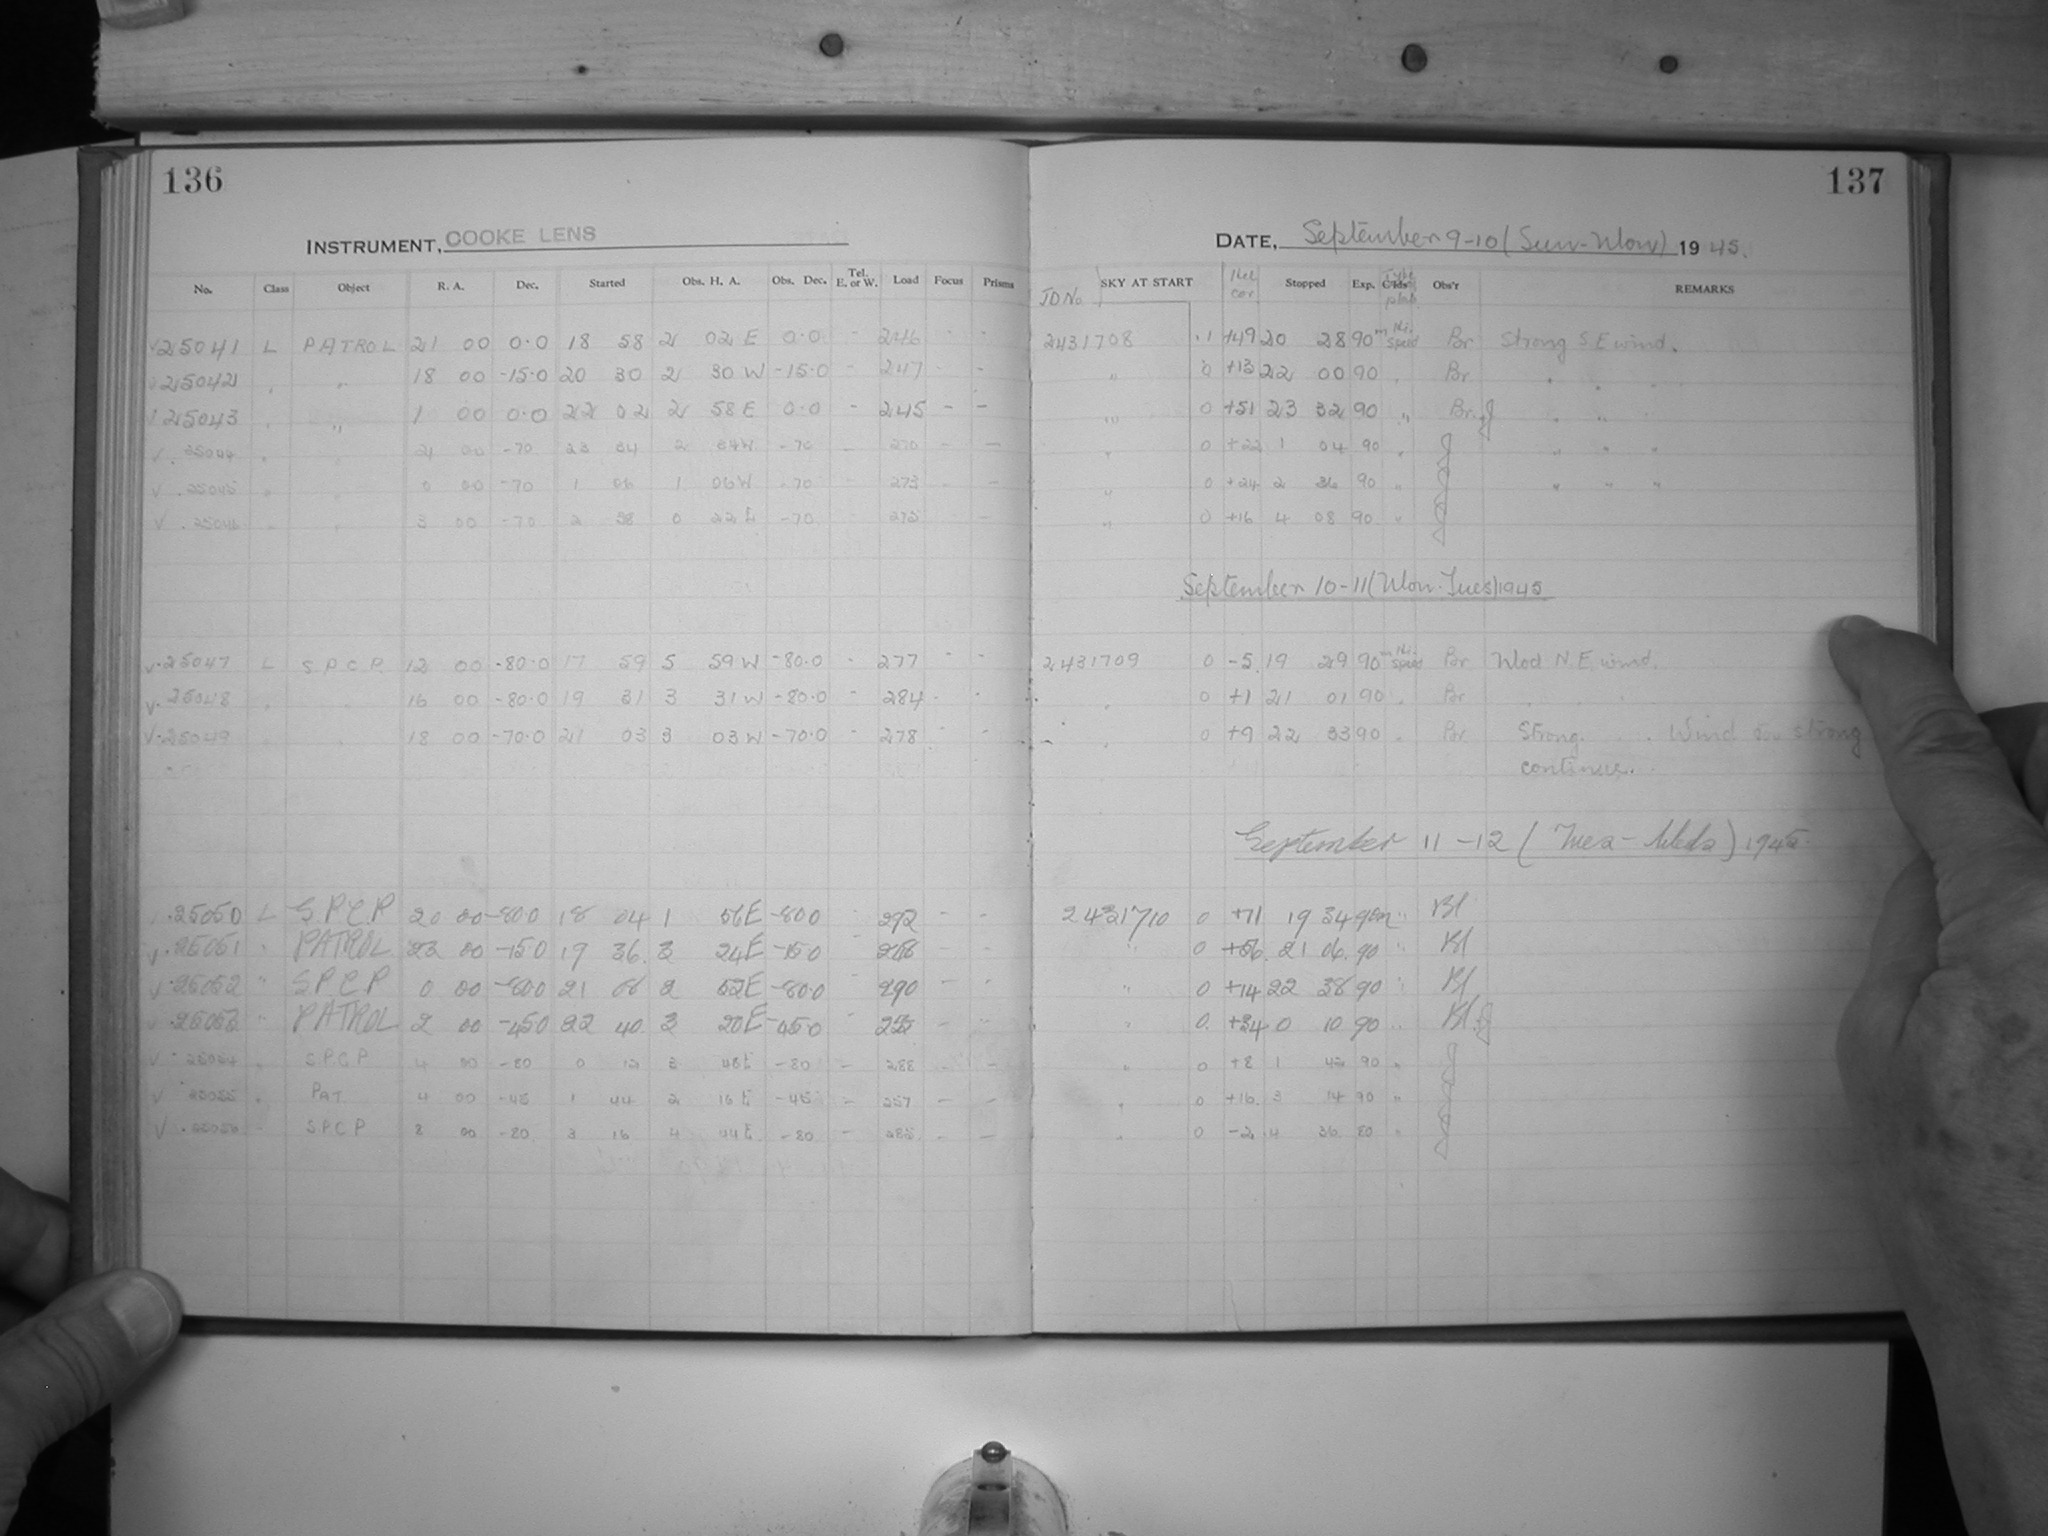 136
137
INSTRUMENT, COOKE LENS
DATE, September 9-10 (Sun-Mon) 1945.
No. Class Object R. A. Dec. Started Obs. H. A. Obs. Dec. Tel. E. or W. Load Focus Prisms JD No SKY AT START Stopped Exp. Obs'r REMARKS
25041 L PATROL 21 00 0.0 18 58 2 02 E 0.0 - 246 - - 2431708 .1 +49 20 28 90m Hi. Speed Br Strong S.E wind.
25042 " " 18 00 -15.0 20 30 2 30 W -15.0 - 247 - - " 0 +13 22 00 90 " Br " " "
25043 " " 1 00 0.0 22 02 2 58 E 0.0 - 245 - - " 0 +51 23 32 90 " Br. J " " "
25044 " " 21 00 -70 23 34 2 34W -70 - 270 - - " 0 +22 1 04 90 " J " " "
25045 " " 0 00 -70 1 06 1 06W -70 273 - - " 0 +24 2 36 90 " " " "
25046 " " 3 00 -70 2 38 0 22 E -70 275 - - " 0 +16 4 08 90 "
September 10-11 (Mon-Tues) 1945
25047 L S.P.C.P. 12 00 -80.0 17 59 5 59 W -80.0 - 277 - - 2431709 0 -5 19 29 90m Hi. Speed Br Mod N.E. wind.
25048 " " 16 00 -80.0 19 31 3 31 W -80.0 - 284 - - " 0 +1 21 01 90 " Br
25049 " " 18 00 -70.0 21 03 3 03 W -70.0 - 278 - - " 0 +9 22 33 90 " Br Strong. " " Wind too strong
continue.
September 11-12 (Tues-Weds) 1945
25050 L S.P.C.P 20 00 -80.0 18 04 1 56E -80.0 292 - - 2431710 0 +71 19 34 90m " Bl
25051 " PATROL 23 00 -15.0 19 36 3 24E -15.0 - - " 0 +56 21 06 90 " Bl
25052 " S.P.C.P 0 00 -80.0 21 08 2 52E -80.0 290 - - " 0 +14 22 38 90 " Bl
25053 " PATROL 2 00 -45.0 22 40 3 20E -45.0 - - " 0 +34 0 10 90 " Bl. J
25054 " SPCP 4 00 -80 0 12 3 48E -80 - 288 - - " 0 +8 1 42 90 "
25055 " PAT 4 00 -45 1 44 2 16 E -45 - 257 - - " 0 +16 3 14 90 "
25056 " SPCP 8 00 -80 3 16 4 44E -80 - - - " 0 -2 4 36 80 "